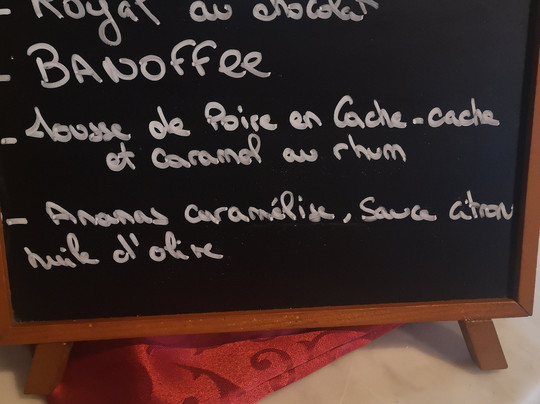 - Royal au chocolat
- BANOFFee
- Mousse de Poire en Cache-cache
et caramel au rhum
- Ananas caramélise, Sauce citron
huile d'olive